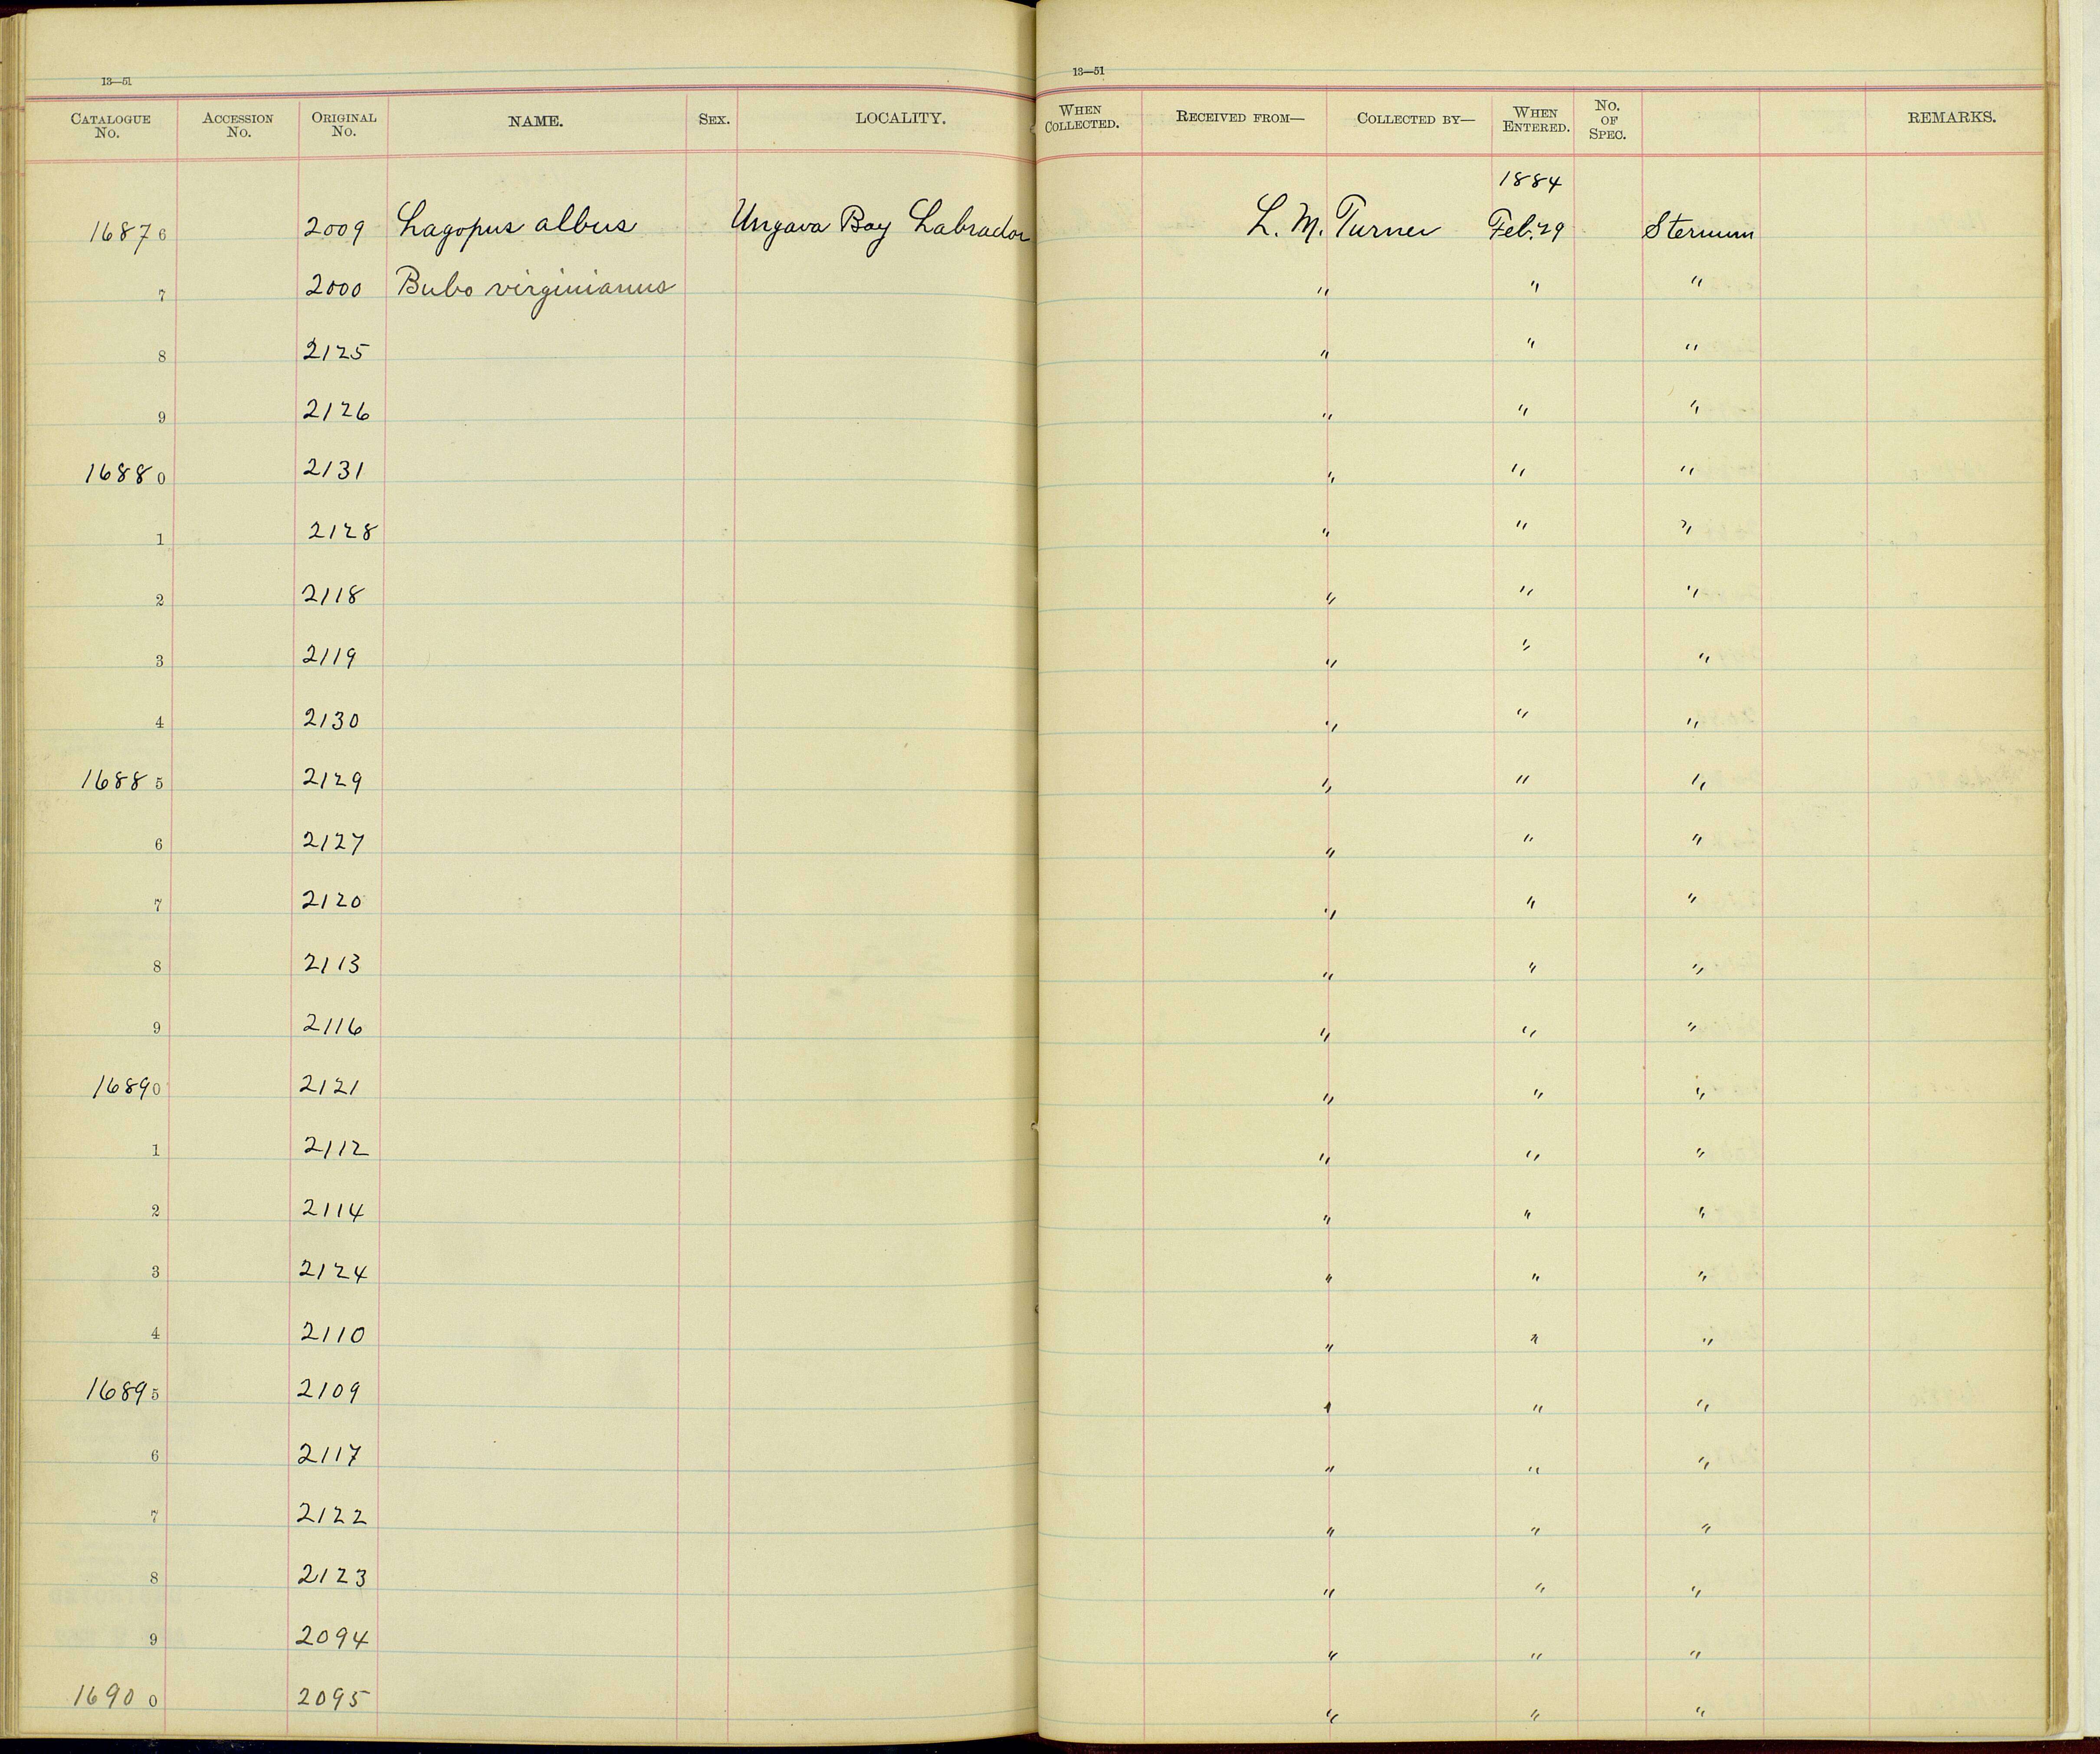 13—51
13—51
CATALOGUE No. ACCESSION No. ORIGINAL No. NAME. SEX. LOCALITY. WHEN COLLECTED. RECEIVED FROM— COLLECTED BY— WHEN ENTERED. No. OF SPEC. REMARKS.
1884
16876 2009 Lagopus albus Ungava Bay Labrador L. M. Turner Feb. 29 Sternum
7 2000 Bubo virginianus " " "
8 2125 " " "
9 2126 " " "
16880 2131 " " "
1 2128 " " "
2 2118 " " "
3 2119 " " "
4 2130 " " "
16885 2129 " " "
6 2127 " " "
7 2120 " " "
8 2113 " " "
9 2116 " " "
16890 2121 " " "
1 2112 " " "
2 2114 " " "
3 2124 " " "
4 2110 " " "
16895 2109 " " "
6 2117 " " "
7 2122 " " "
8 2123 " " "
9 2094 " " "
16900 2095 " " "